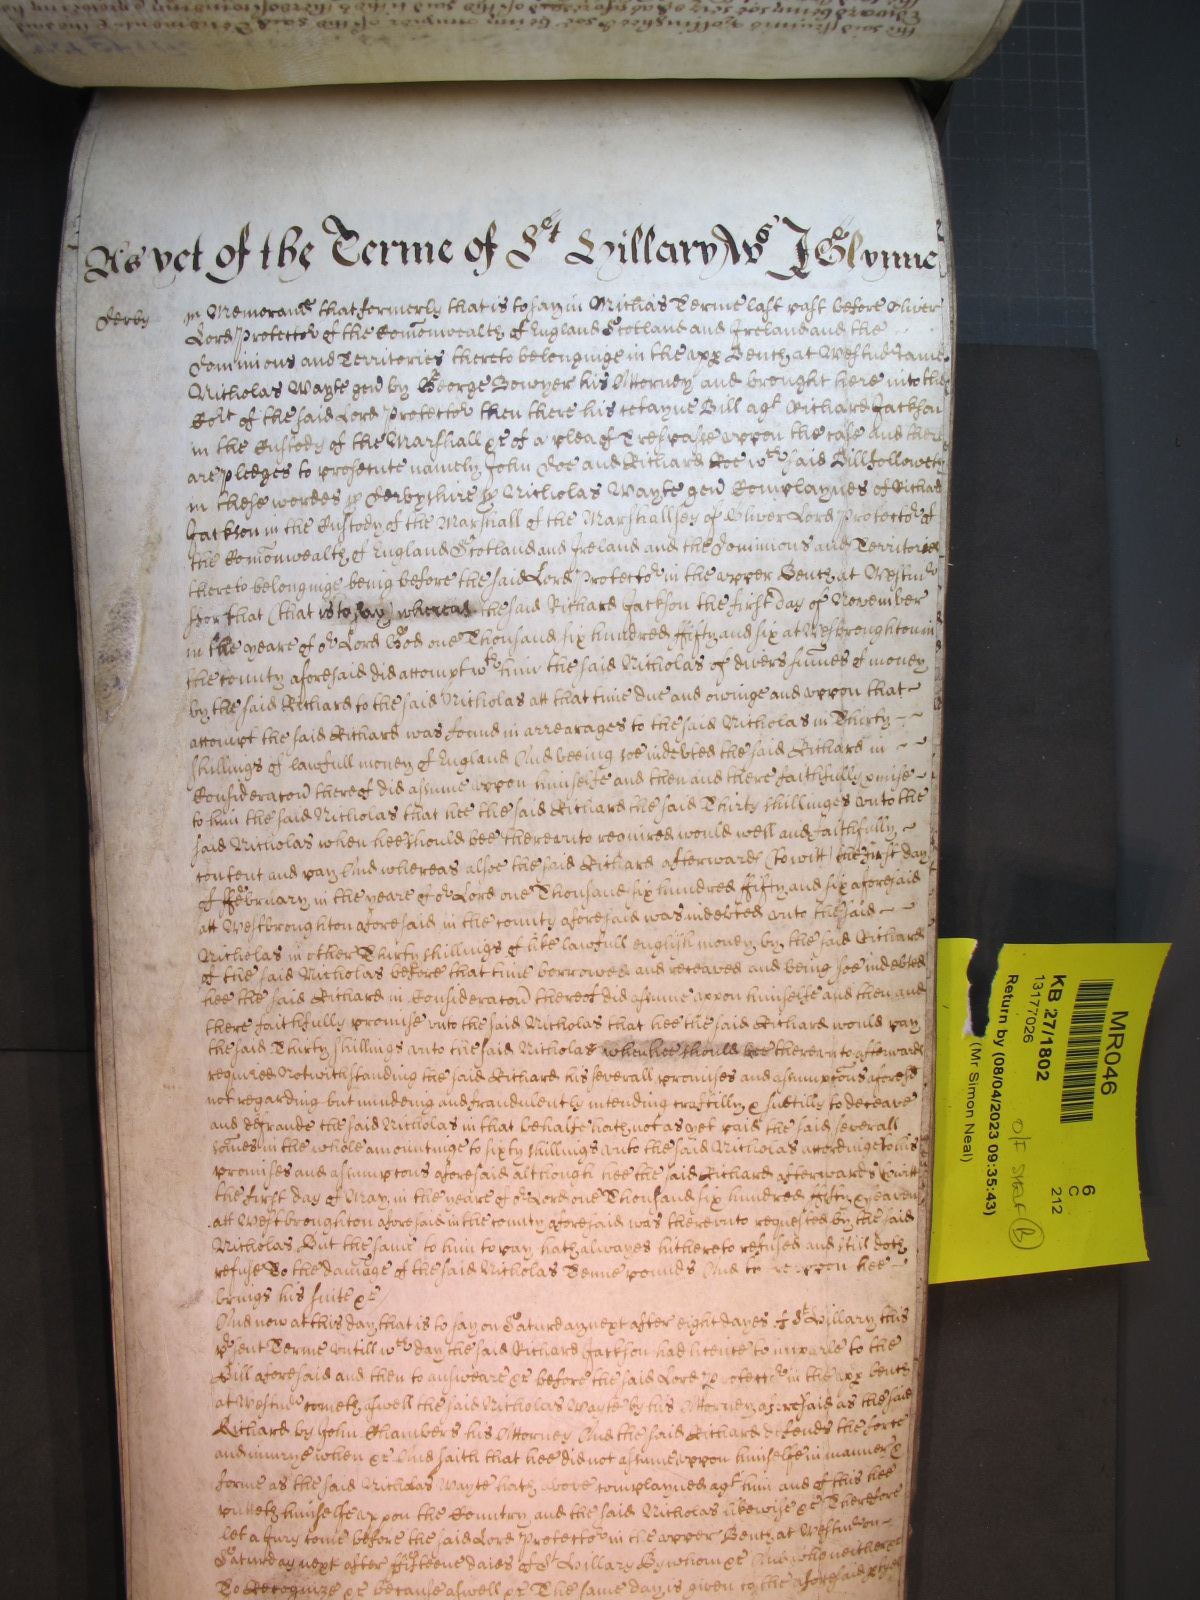 As yet of the Terme of Set Hillary Ws J Glynne
Derby
Memorand that formerly that is to say in Michas Terme last past before Oliver
Lord Protector of the Comonwealth of England Scotland and Ireland and the
Dominions and Territories thereto belonginge in the upp Bench at Westmr came
Nicholas Wayte gen by George Bowyer his Attorney and brought here into the
Cort of the said Lord Protector then there his certayne Bill agt Richard Jackson
in the Custody of the Marshall &c of a plea of Trespasse uppon the case and there
are pledges to prosecute namely John Doe and Richard Roe wch said Bill followeth
in these wordes ss Derbyshire ss Nicholas Wayte gen Complaynes of Richard
Jackson in the Custody of the Marshall of the Marshallsey of Oliver Lord Protector of
the Comonwealth of England Scotland and Ireland and the Dominions and Territories
thereto belonginge being before the said Lord Protector in the upper Bench at Westmr
For that (that is to say) whereas the said Richard Jackson the first day of November
in the yeare of or Lord God one Thousand six hundred fifty and six at Westbroughton in
the county aforesaid did attompt wth him the said Nicholas of divers sumes of money
by the said Richard to the said Nicholas att that time due and owinge and uppon that
attompt the said Richard was found in arrearages to the said Nicholas in Thirty
shillings of lawfull money of England And beeing soe indebted the said Richard in
Consideracon thereof did assume uppon himselfe and then and there faithfully pmise
to him the said Nicholas that hee the said Richard the said Thirty shillinges unto the
said Nicholas when hee should bee thereunto required would well and faithfully
content and pay And whereas alsoe the said Richard afterwards (to witt) the first day
of February in the yeare of or Lord one Thousand six hundred fifty and six aforesaid
att Westbroughton aforesaid in the county aforesaid was indebted unto the said
Nicholas in other Thirty shillings of like lawfull english money by the said Richard
of the said Nicholas before that time borrowed and receaved and being soe indebted
hee the said Richard in Consideracon thereof did assume uppon himselfe and then and
there faithfully promise unto the said Nicholas that hee the said Richard would pay
the said Thirty shillings unto the said Nicholas when hee should bee thereunto afterwards
required Notwithstanding the said Richard his severall promises and assumptons aforesd
not regarding but mindeing and fraudulently intending craftilly & subtilly to deceave
and defraude the said Nicholas in that behalfe hath not as yet paid the said severall
somes in the whole amountinge to sixty shillings unto the said Nicholas accordinge to his
promises and assumptons aforesaid although hee the said Richard afterwards (to witt)
the first day of May in the yeare of or Lord one Thousand six hundred fifty & seaven
att Westbroughton aforesaid in the county aforesaid was thereunto requested by the said
Nicholas But the same to him to pay hath alwayes hitherto refused and still doth
refuse To the damage of the said Nicholas Tenne pounds And thereuppon hee
brings his suite &c
And now at this day that is to say on Saturday next after eight dayes of St Hillary this
psent Terme untill wch day the said Richard Jackson had licence to imparle to the
Bill aforesaid and then to answeare &c before the said Lord Protector in the upp bench
at Westmr cometh aswell the said Nicholas Wayte by his Attorney aforesaid as the said
Richard by John Chambers his Attorney And the said Richard defends the force
and iniurye when &c And saith that hee did not assume uppon himselfe in manner &
forme as the said Nicholas Wayte hath above complayned agt him and of this hee
putteth himselfe uppon the Country and the said Nicholas likewise &c Therefore
let a Jury come before the said Lord Protector in the upper Bench at Westmr on
Saturday next after fifteene daies of St Hillary By whom &c And who neither &c
To Recognize &c because aswell &c The same day is given to the aforesaid ptyes
MR046
6
C
212
KB 27/1802
13177026
Return by (08/04/2023 09:35:43)
(Mr Simon Neal)